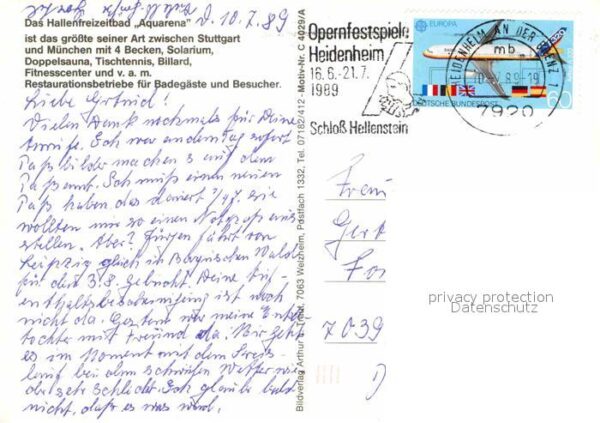 d. 10.7.89
Das Hallenfreizeitbad „Aquarena"
ist das größte seiner Art zwischen Stuttgart
und München mit 4 Becken, Solarium,
Doppelsauna, Tischtennis, Billard,
Fitnesscenter und v. a. m.
Restaurationsbetriebe für Badegäste und Besucher.
Liebe Gertrud!
Vielen Dank nochmals für Deine
Ich war an dem Tag sofort
Paßbilder machen und auf dem
Paßamt. Ich muß einen neuen
Paß haben das dauert
wollten mir so einen Notpaß aus
stellen. Aber? Jürgen fährt von
Leipzig gleich in Bayrischen Wald
den 3.8. gebracht Deine Auf
enthaltsbescheinigung ist noch
nicht da. Gestern war meine Enkel
tochter mit Freund da. Mir geht
es im Moment mit dem Kreis
lauf bei dem schwülen Wetter wie
der sehr schlecht. Ich glaube bald
nicht, daß es was wird.
Bildverlag Arthur F. Krüger, 7063 Welzheim, Postfach 1332, Tel. 07182/412 - Motiv-Nr. C 4029/A
Opernfestspiele
Heidenheim
16.6.-21.7.
1989
Schloß Hellenstein
EUROPA
DEUTSCHE BUNDESPOST
60
HEIDENHEIM AN DER BRENZ 1
mb
-19
7920
Gert
7039
privacy protection
Datenschutz